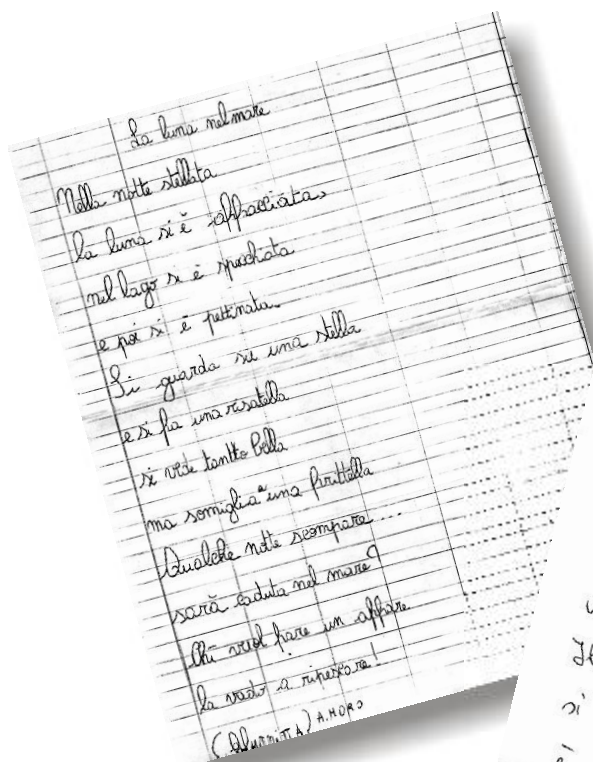 La luna nel mare
Nella notte stellata
la luna si è affacciata,
nel lago si è specchiata
e poi si è pettinata.
Si guarda su una stella
e si fa una risatella
si vede tantto bella
ma somiglia a una frittella
Qualche notte scompare...
sarà caduta nel mare?
Chi vuol fare un affare
la vada a ripescare!
A. MORO